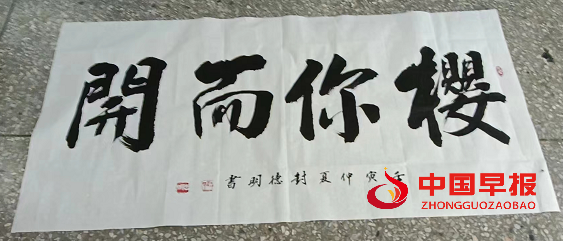 櫻你而開
寅仲夏封德明書
中国早报
ZHONGGUOZAOBAO